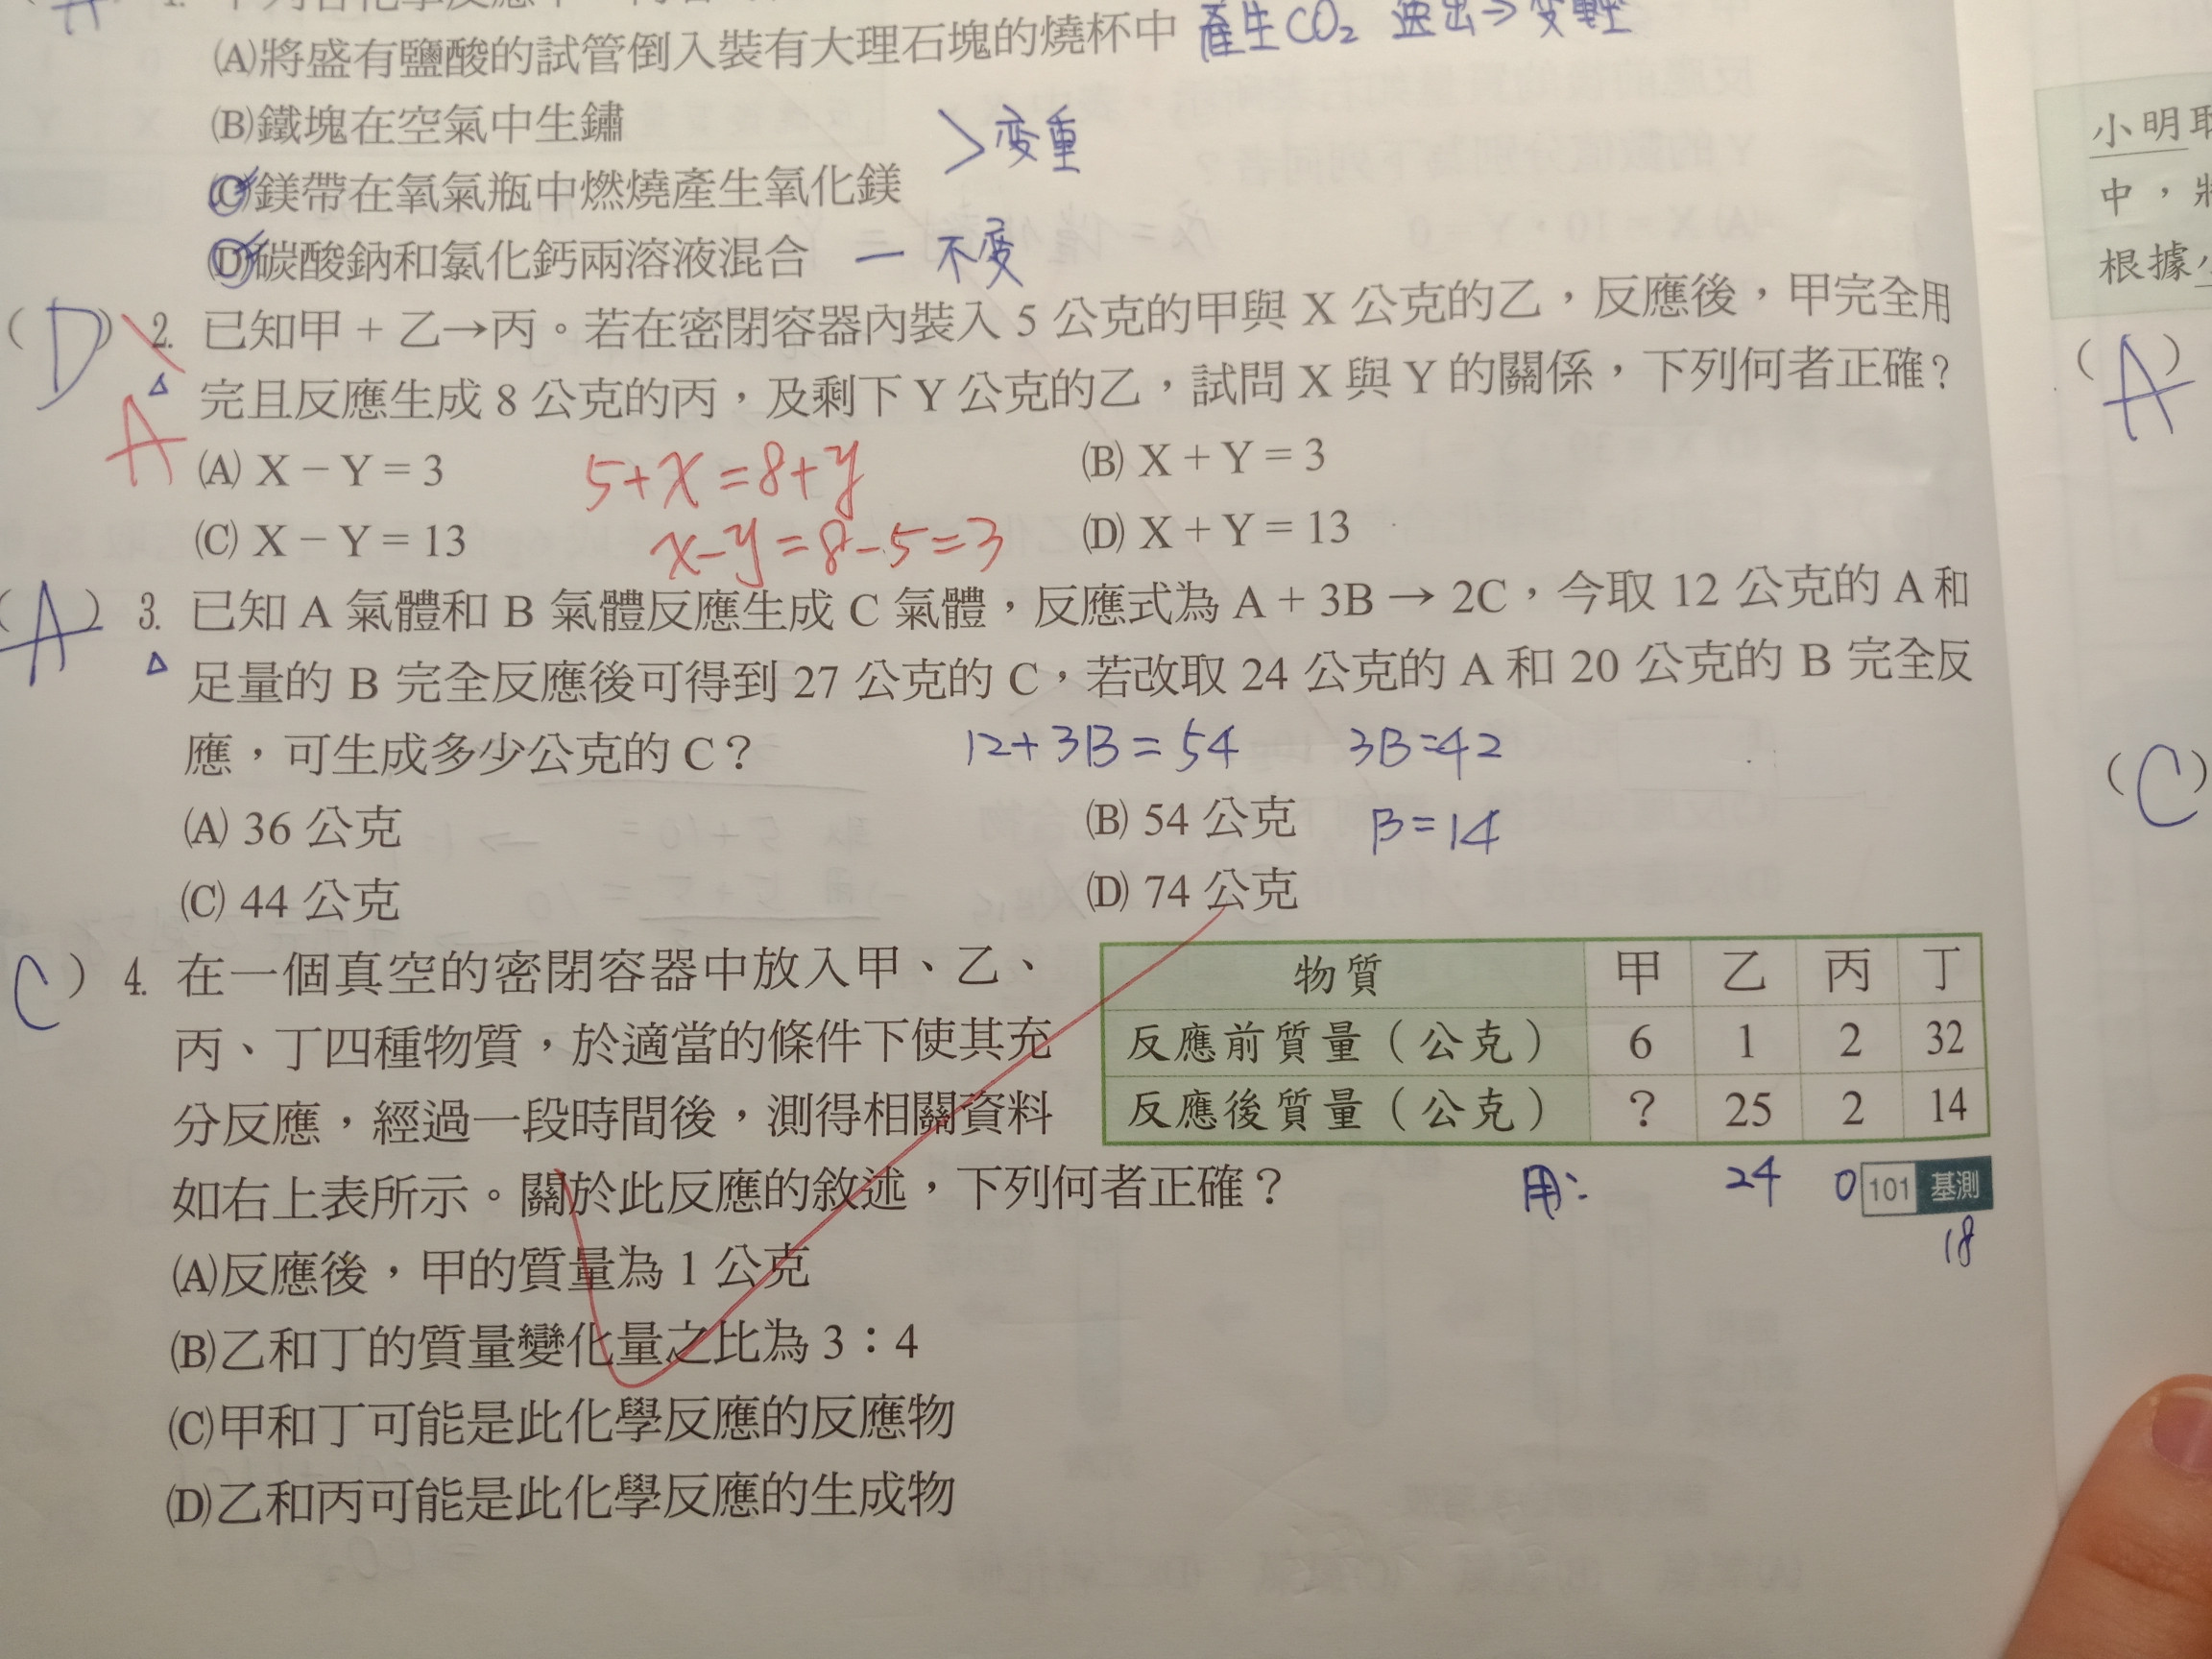 (A)將盛有鹽酸的試管倒入裝有大理石塊的燒杯中 產生CO₂ 逸出→变輕
(B)鐵塊在空氣中生鏽
>变重
(C)鎂帶在氧氣瓶中燃燒產生氧化鎂
(D)碳酸鈉和氯化鈣兩溶液混合 — 不变
(D) 2. 已知甲 + 乙→丙。若在密閉容器內裝入 5 公克的甲與 X 公克的乙,反應後,甲完全用
完且反應生成 8 公克的丙,及剩下 Y 公克的乙,試問 X 與 Y 的關係,下列何者正確?
A (A) X − Y = 3 5+x=8+y (B) X + Y = 3
(C) X − Y = 13 x-y=8-5=3 (D) X + Y = 13
(A) 3. 已知 A 氣體和 B 氣體反應生成 C 氣體,反應式為 A + 3B → 2C,今取 12 公克的 A 和
足量的 B 完全反應後可得到 27 公克的 C,若改取 24 公克的 A 和 20 公克的 B 完全反
應,可生成多少公克的 C? 12+3B=54 3B=42
(A) 36 公克 (B) 54 公克 B=14
(C) 44 公克 (D) 74 公克
C) 4. 在一個真空的密閉容器中放入甲、乙、
丙、丁四種物質,於適當的條件下使其充
分反應,經過一段時間後,測得相關資料
如右上表所示。關於此反應的敘述,下列何者正確?
物質 甲 乙 丙 丁
反應前質量(公克) 6 1 2 32
反應後質量(公克) ? 25 2 14
用: 24 0 101 基測
18
(A)反應後,甲的質量為 1 公克
(B)乙和丁的質量變化量之比為 3:4
(C)甲和丁可能是此化學反應的反應物
(D)乙和丙可能是此化學反應的生成物
小明
中,
根據
(A)
(C)